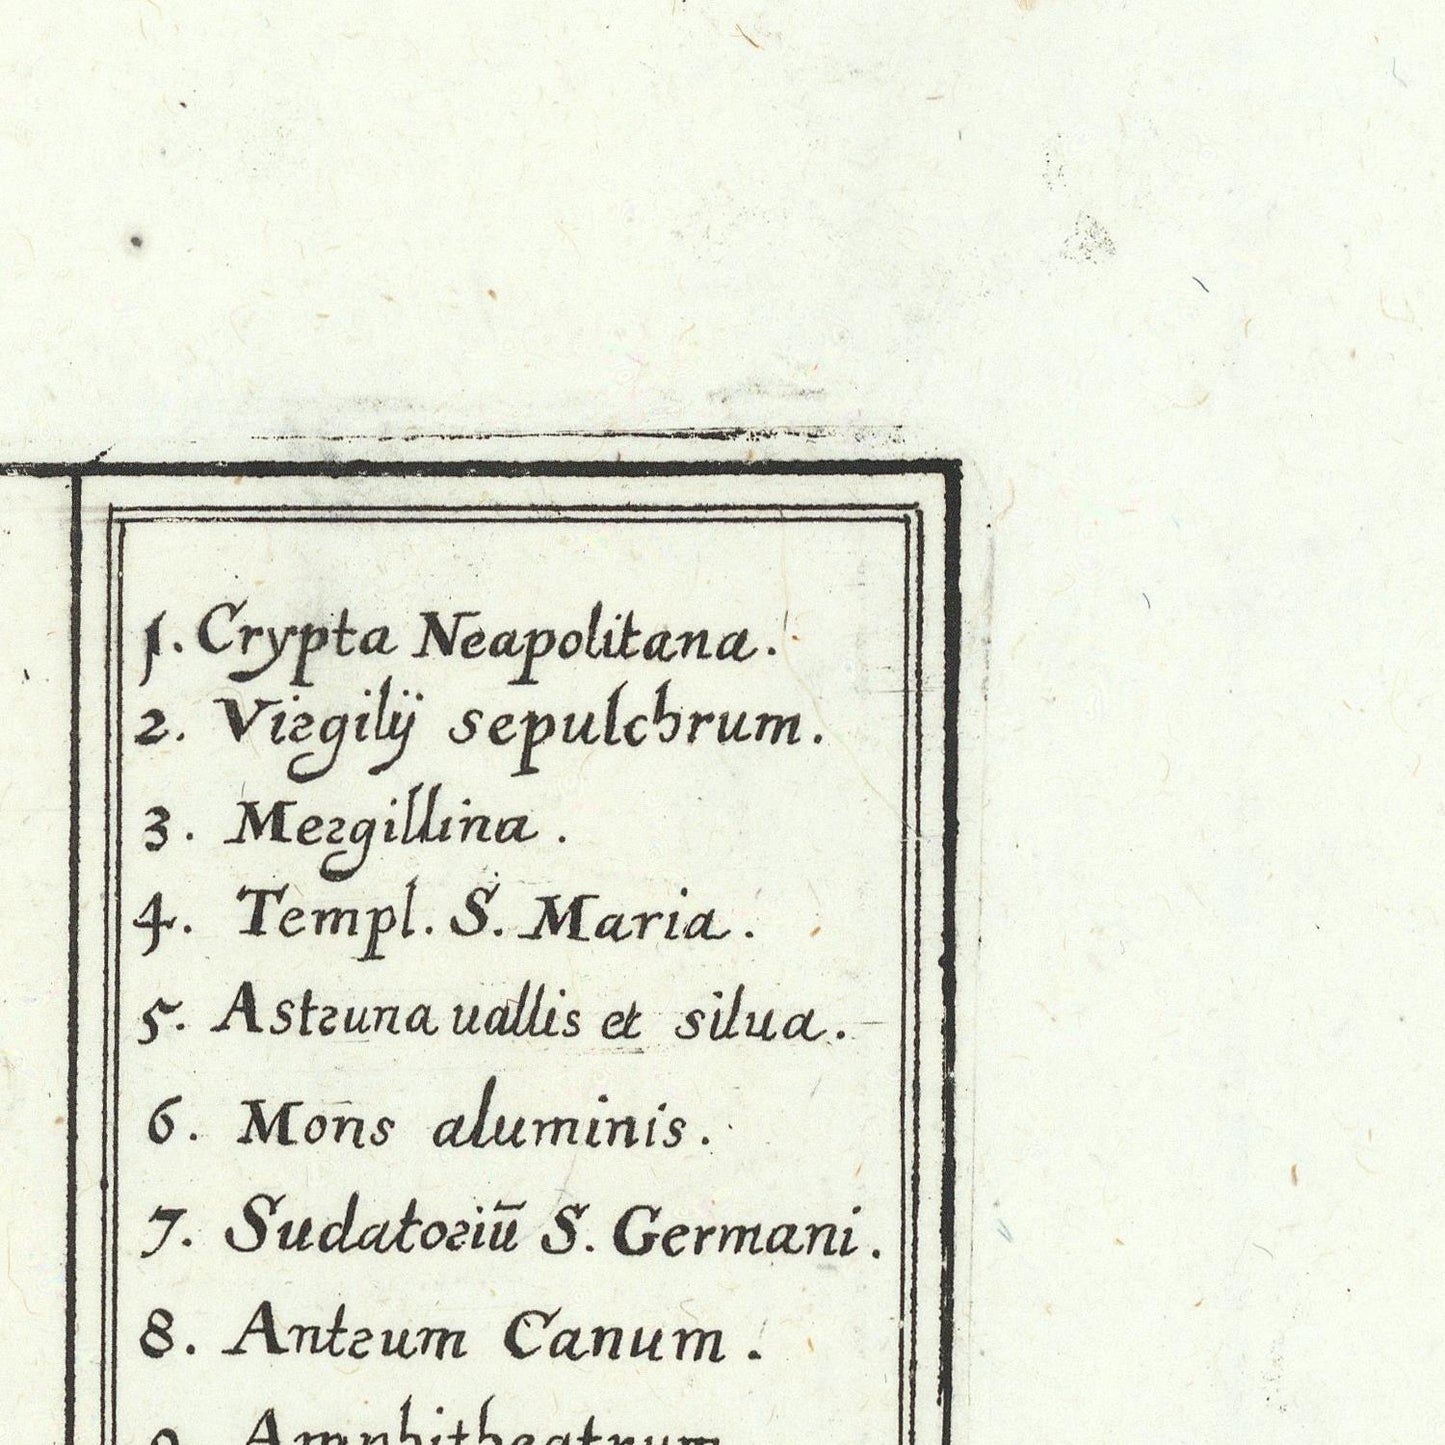 1. Crypta Neapolitana.
2. Virgilij sepulchrum.
3. Mergillina.
4. Templ. S. Maria.
5. Astruna uallis et silua.
6. Mons aluminis.
7. Sudatoriū S. Germani.
8. Antrum Canum.
9. Amphitheatrum